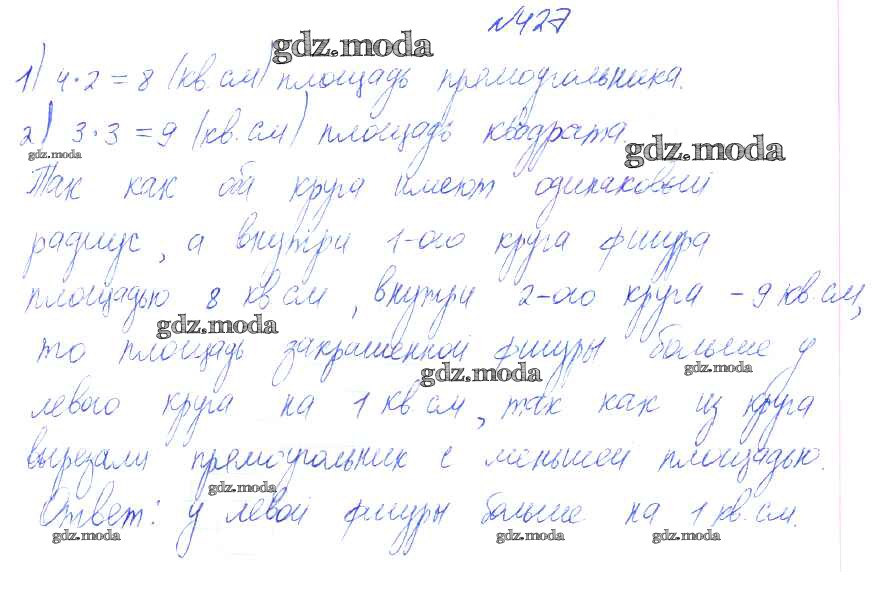 №427
gdz.moda
1) 4·2 = 8 (кв. см) площадь прямоугольника.
2) 3·3 = 9 (кв. см) площадь квадрата.
gdz.moda
gdz.moda
Так как оба круга имеют одинаковый
радиус, а внутри 1-ого круга фигура
площадью 8 кв см, внутри 2-ого круга - 9 кв. см,
gdz.moda
то площадь закрашенной фигуры больше у
gdz.moda
gdz.moda
левого круга на 1 кв см, так как из круга
вырезали прямоугольник с меньшей площадью.
gdz.moda
Ответ: у левой фигуры больше на 1 кв. см.
gdz.moda
gdz.moda
gdz.moda